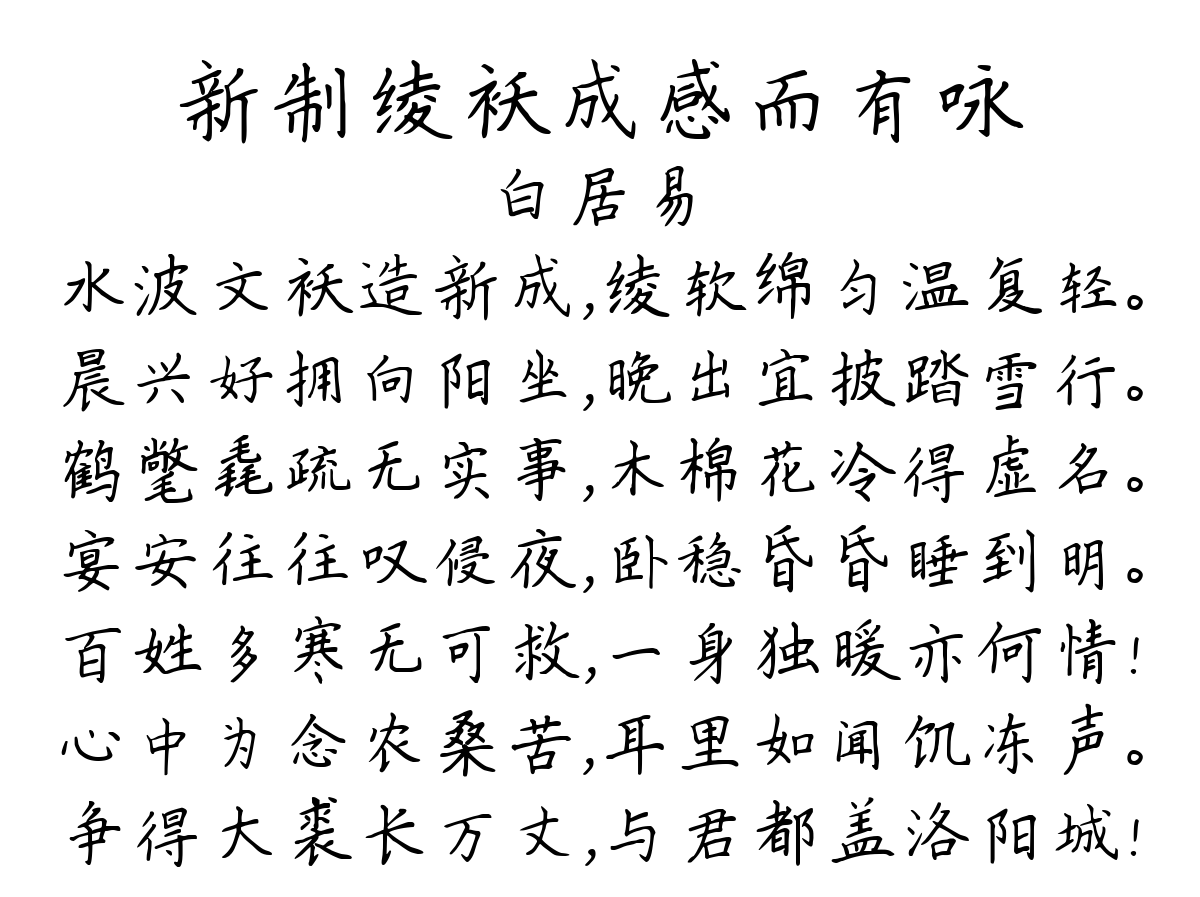 新制绫袄成感而有咏
白居易
水波文袄造新成,绫软绵匀温复轻。
晨兴好拥向阳坐,晚出宜披踏雪行。
鹤氅毳疏无实事,木棉花冷得虚名。
宴安往往叹侵夜,卧稳昏昏睡到明。
百姓多寒无可救,一身独暖亦何情!
心中为念农桑苦,耳里如闻饥冻声。
争得大裘长万丈,与君都盖洛阳城!